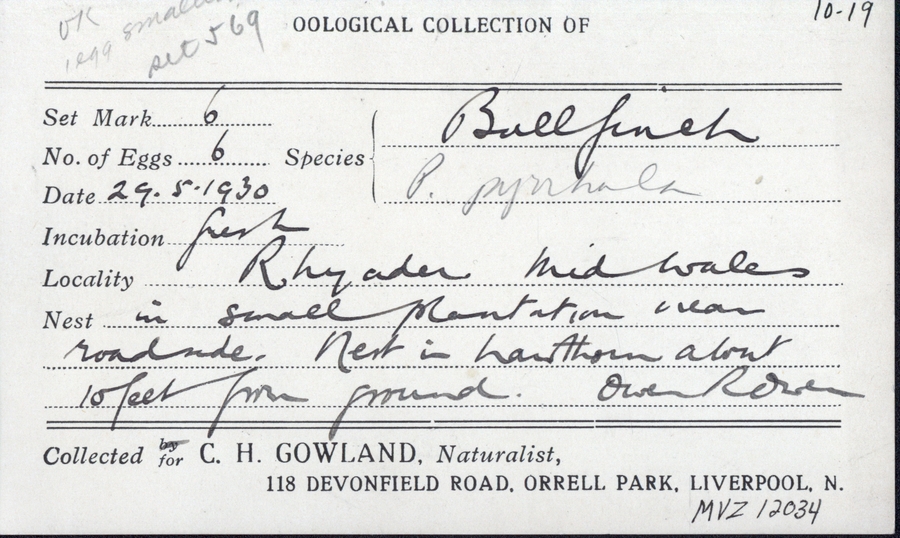 OK
egg smaller
set 569
10-19
OOLOGICAL COLLECTION OF
Set Mark 6
No. of Eggs 6 Species Bullfinch
P. pyrrhula
Date 29.5.1930
Incubation fresh
Locality Rhyader Mid Wales
Nest in small plantation near
roadside. Nest in hawthorn about
10 feet from ground. Owen R Owen
Collected by for C. H. GOWLAND, Naturalist,
118 DEVONFIELD ROAD, ORRELL PARK, LIVERPOOL, N.
MVZ 12034